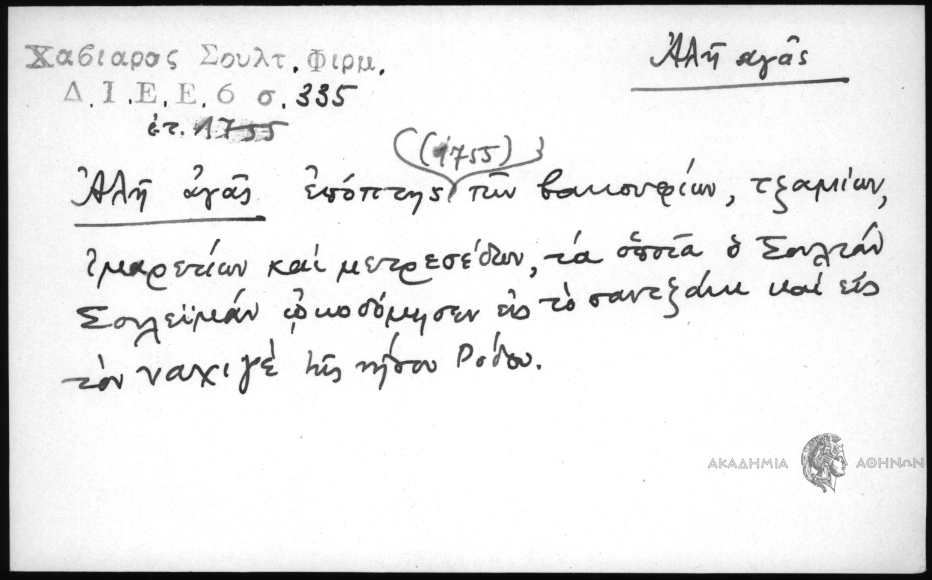 Χαβιαρος Σουλτ. Φιρμ.
Ἀλῆ αγᾶς
Δ. Ι. Ε. Ε. 6 σ. 335
ἐτ. 1755
(1755)
Ἀλῆ ἀγᾶς ἐπόπτης τῶν βακουφίων, τζαμίων,
ἰμαρετίων καὶ μετρεσέδων, τὰ ὁποῖα ὁ Σουλτάν
Σουλεϊμάν ᾠκοδόμησεν εἰς τὸ σαντζάκι καὶ εἰς
τὸν ναχιγέ τῆς νήσου Ρόδου.
ΑΚΑΔΗΜΙΑ ΑΘΗΝΩΝ